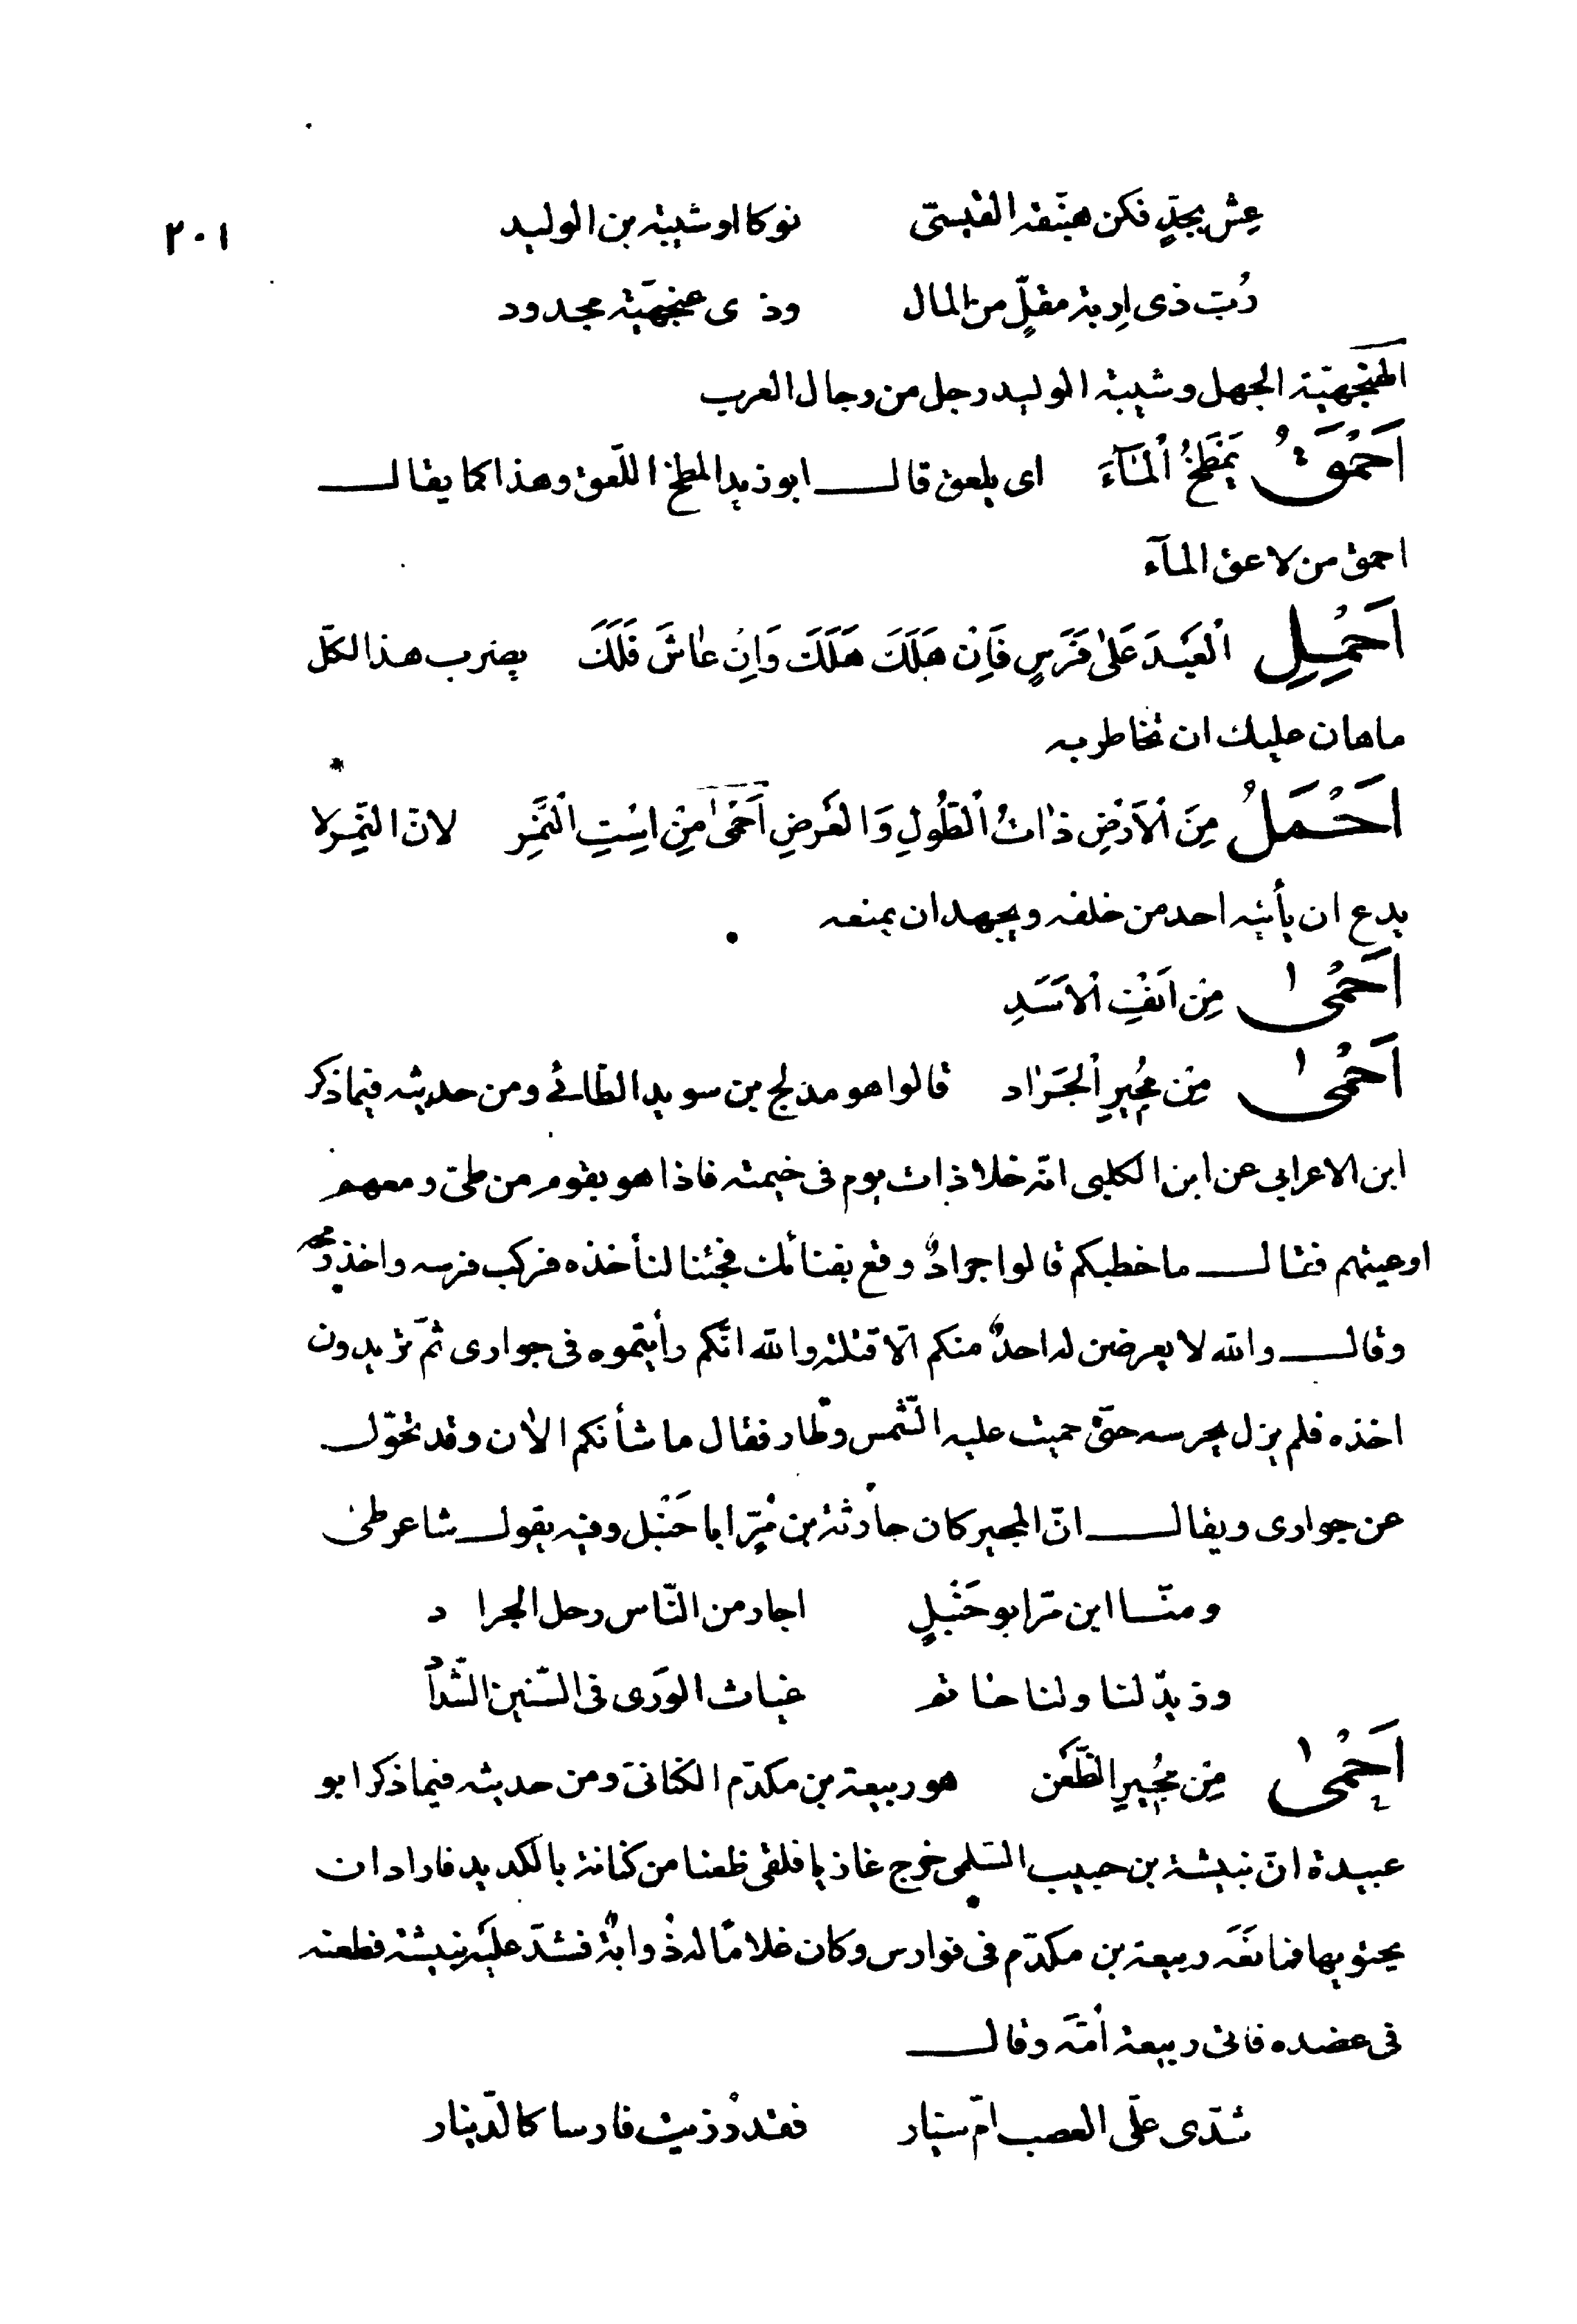 ٢٠١
عِش بجدٍّ فكن هبنّقه القيسىّ نوكا او شيبة بن الوليد
رُبّ ذى اِربة مقلٍّ من المال وذى عنجهيّة مجدود
العنجهيّة الجهل وشيبة الوليد رجل من رجال العرب
اَحْمَقُ يَمْطَخُ اْلمَآءَ اى يلعق قال ابو زيد المطخ اللّعق وهذا كما يقال
احمق من لاعق المآء
اَحْمِلِ اْلعَبْدَ عَلىٰ فَرَسٍ فَاِنْ هَلَكَ هَلَكَ وَاِنْ عٰاشَ فَلَكَ يضرب هذا لكلّ
ما هان عليك ان تخاطر به
اَحْمَلُ مِنَ اْلاَرْضِ ذٰاتُ اْلطُّولِ وَالعَرضِ اَحْمىٰ مِنْ اِسْتِ اْلنَّمِرِ لانّ النّمِر لا
يدع ان يأتيه احد من خلفه ويجهد ان يمنعه
اَحْمىٰ مِنْ اَنفْ اْلاَسَدِ
اَحْمىٰ مِنْ مُجٖيرِ اْلجَرٰاد قالوا هو مدلج بن سويد الطّائى ومن حديثه فيما ذكر
ابن الاعرابى عن ابن الكلبى انّه خلا ذات يوم فى خيمته فاذا هو بقوم من طىّ ومعهم
اوعيتهم فقال ما خطبكم قالوا جرادٌ وقع بفنائك فجئنا لنأخذه فركب فرسه واخذ رمحه
وقال والله لا يعرضن له احدٌ منكم الّا قتلته والله انّكم رأيتموه فى جوارى ثمّ تريدون
اخذه فلم يزل يحرسه حتّى حميت عليه الشّمس وطار فقال ما شأنكم الاٰن وقد تحوّل
عن جوارى ويقال انّ المجير كان حارثة بن مُرّ ابا حَنْبل وفيه يقول شاعر طىّ
ومنّا ابن مرّ ابو حَنْبلٍ اجار من النّاس رحل الجراد
وزيدٌ لنا ولنا حاتم غياث الورَى فى السّنين الشّداد
اَحْمىٰ مِنْ مُجٖيرِ الظُّعَن هو ربيعة بن مكدّم الكنانىّ ومن حديثه فيما ذكر ابو
عبيدة انّ نبيشة بن حبيب السّلمى خرج غازيا فلقى ظعنا من كنانة بالكديد فاراد ان
يحتوبها فمانعَه ربيعة بن مكدّم فى فوارس وكان غلامًا له ذُوابةٌ فشدّ عليه نبيشة فطعنه
فى عضده فاتى ربيعة اُمّه وقال
شدّى علَى العصب امّ سيّار فقد رُزيت فارسا كالدّينار